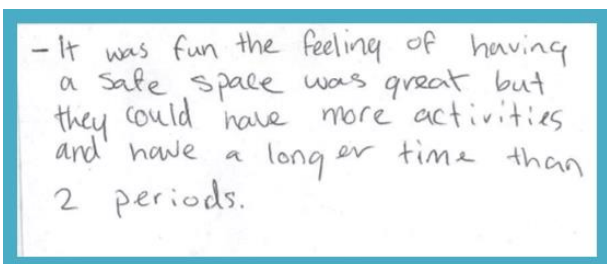 - It was fun the feeling of having
a safe space was great but
they could have more activities
and have a longer time than
2 periods.